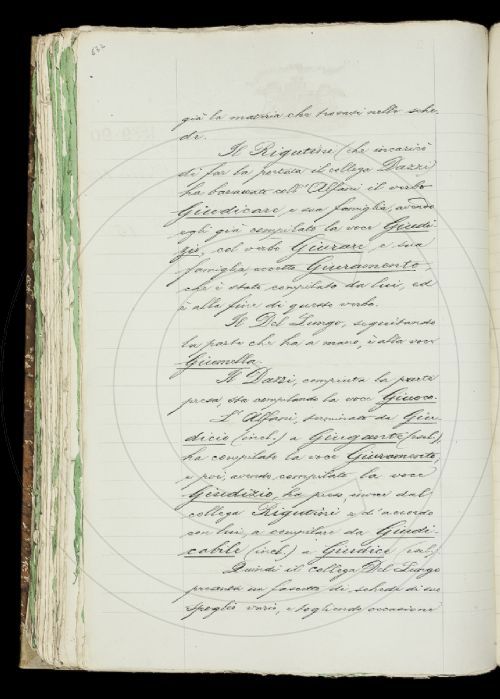 632
già la materia che trovasi nelle sche-
de.
Il Rigutini (che incaricò
di far la portata il collega Dazzi)
ha barattato coll'Alfani il verbo
Giudicare, e sua famiglia, avendo
egli già compilato la voce Giudi-
zio, col verbo Giurare, e sua
famiglia, eccetto Giuramento,
che è stato compilato da lui, ed
è alla fine di questo verbo.
Il Del Lungo, seguitando
la parte che ha a mano, è alla voce
Giunella.
Il Dazzi, compiuta la parte
presa, sta compilando la voce Giuoco.
L'Alfani, terminato da Giu-
dicio (incl.) a Giugante (escl.),
ha compilato la voce Giuramento,
e poi, avendo compilato la voce
Giudizio, ha preso, invece dal
collega Rigutini e d'accordo
con lui, a compilare da Giudi-
cabile (incl.) a Giudice (escl.)
Quindi il collega Del Lungo
presenta un fascetto di schede di suoi
spogli varii, e togliendo occasione